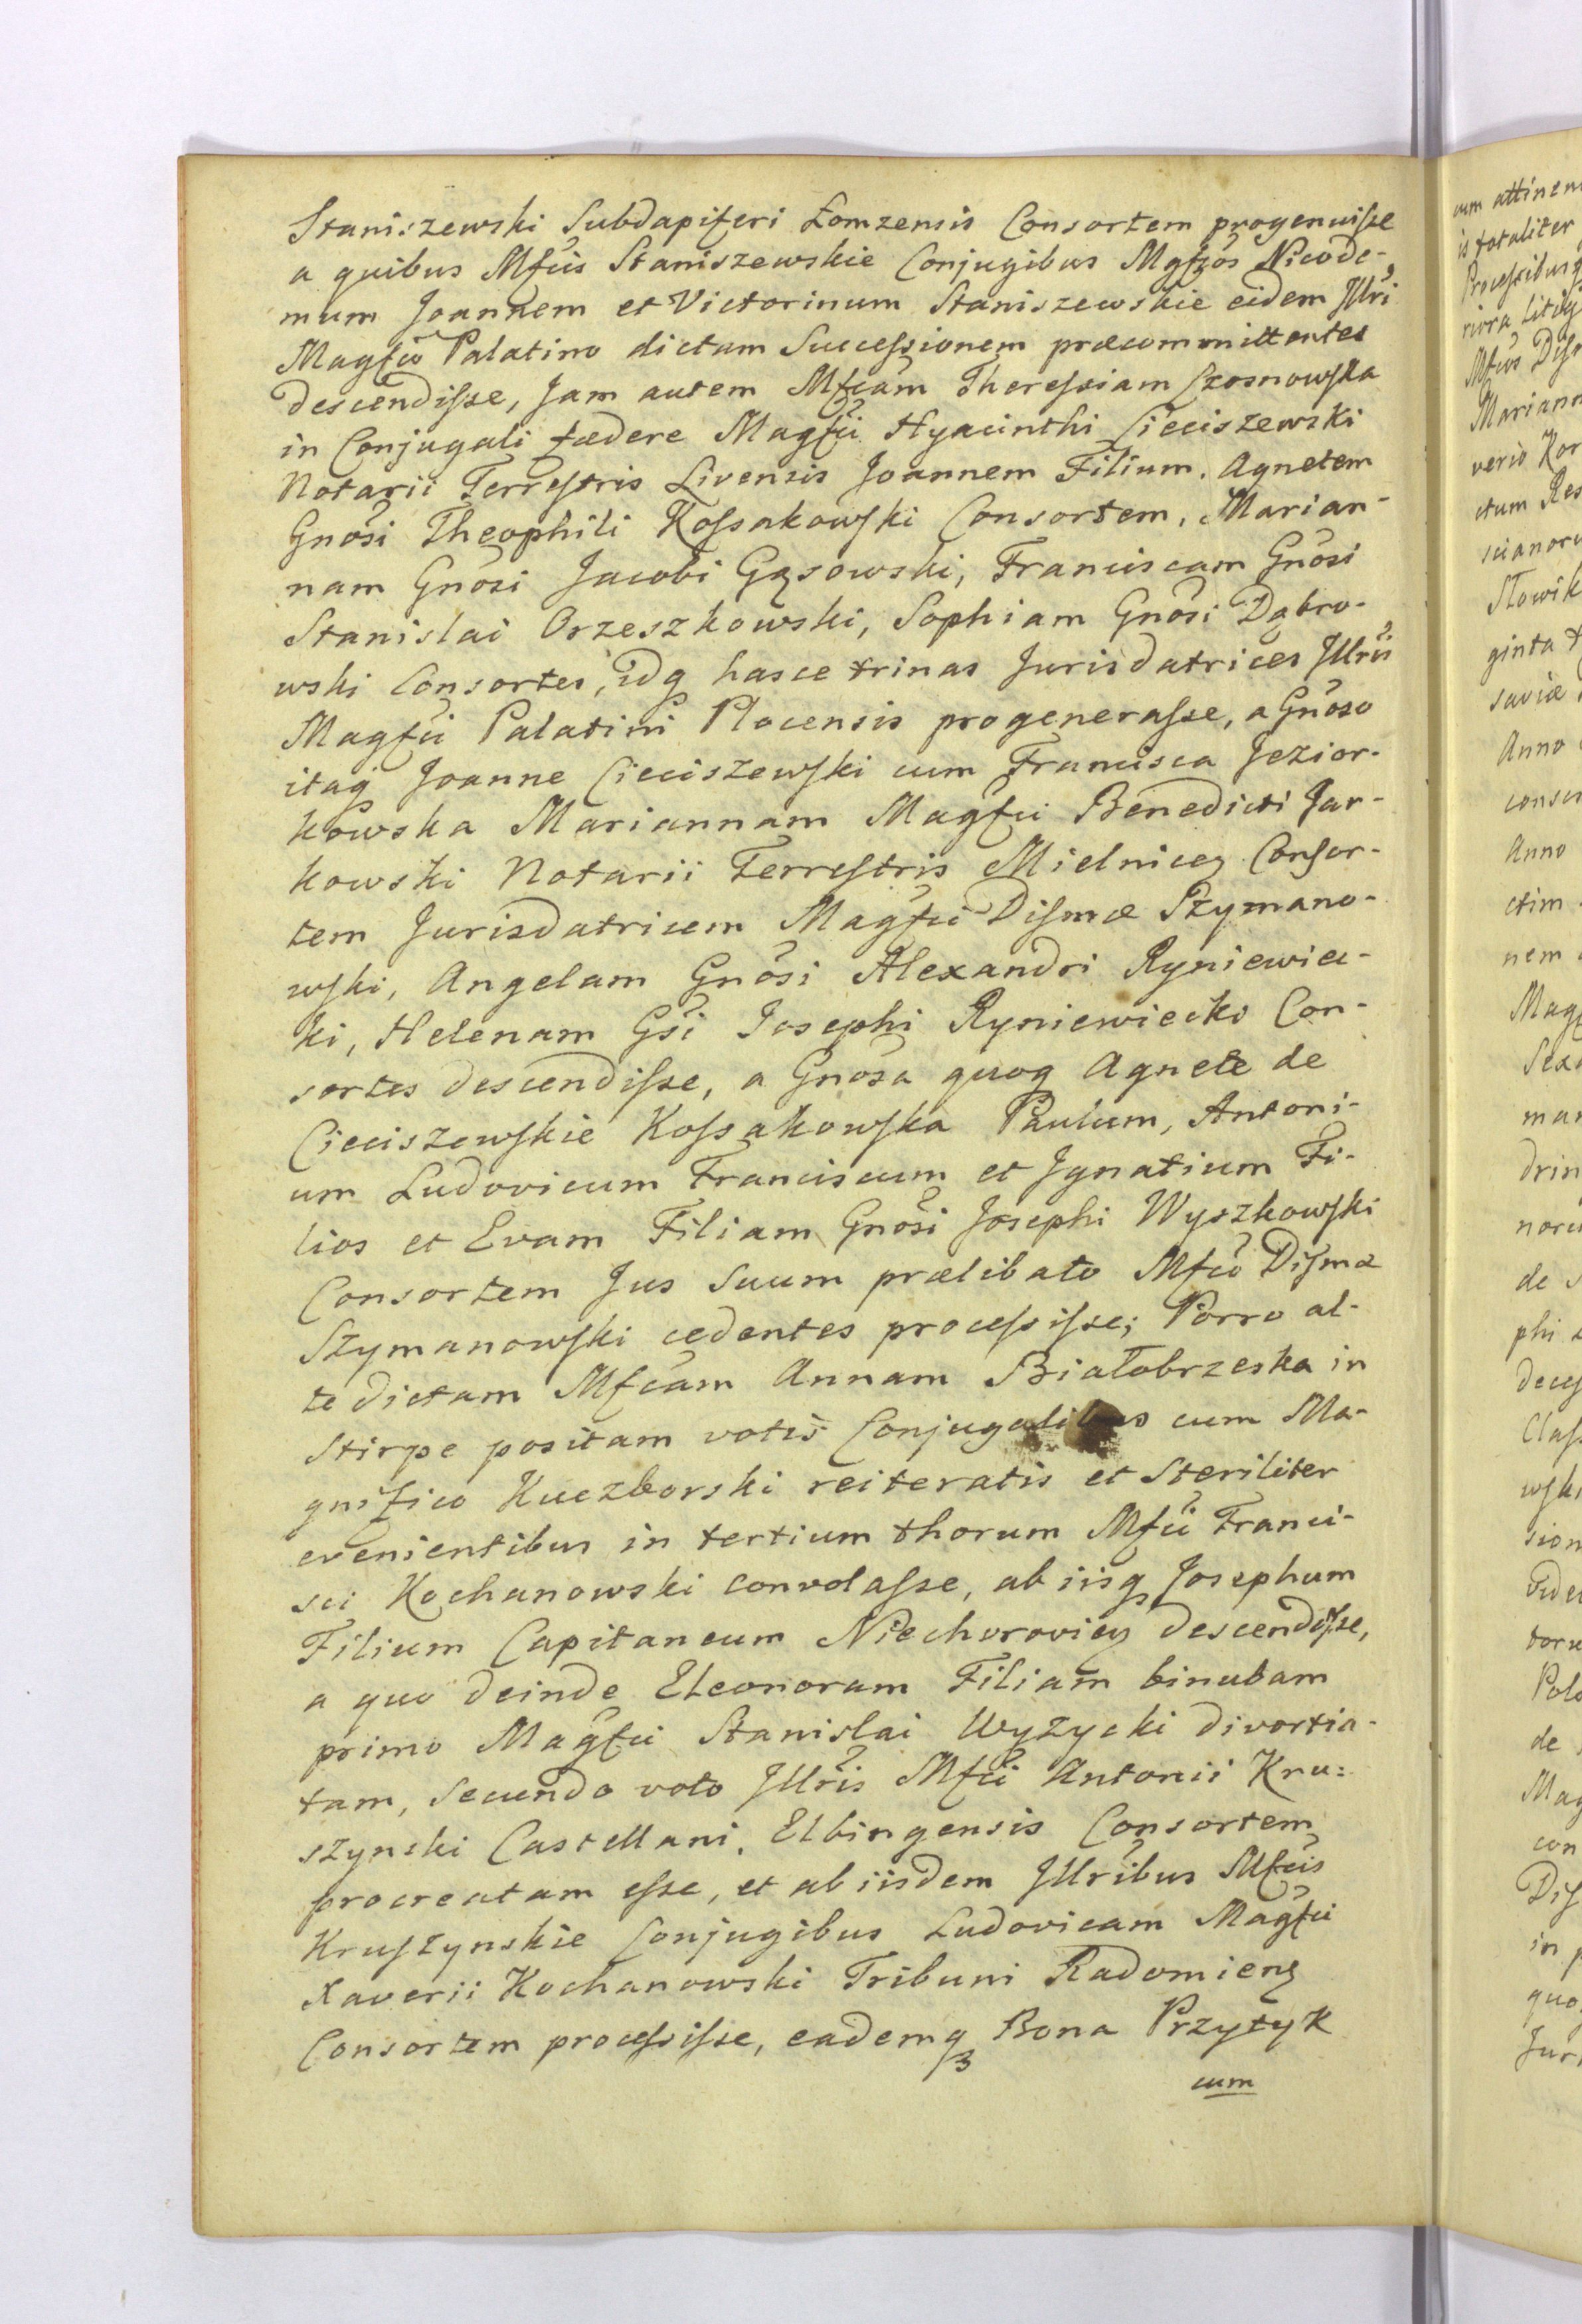 Staniszewski Subdapiferi Łomzensis Consortem progenuisse
a quibus Mfcis Staniszewskie Conjugibus Mgfcos Nicode-
mum Joannem et Victorinum Staniszewskie eidem Jllri
Magfco Palatino dictam Successionem præcommittentes
descendisse, Jam autem Mfcam Theressiam Czosnowska
in Conjugali fædere Magfci Hyacinthi Cieciszewski
Notarii Terrestris Livensis Joannem Filium. Agnetem
Gnosi Theophili Kossakowski Consortem, Marian-
nam Gnosi Jacobi Gąsowski, Franciscam Gnosi
Stanislai Orzeszkowski, Sophiam Gnosi Dąbro-
wski Consortes, idq hasce trinas Jurisdatrices Jllris
Magfci Palatini Plocensis progenerasse, a Gnoso
itaq Joanne Cieciszewski cum Francisca Jezior-
kowska Mariannam Magfci Benedicti Jar-
kowski Notarii Terrestris Mielnicen Consor-
tem Jurisdatricem Magfci Dismæ Szymano-
wski, Angelam Gnosi Alexandri Ryniewiec-
ki, Helenam Gsi Josephi Ryniewiecki Con-
sortes descendisse, a Gnosa quoq Agnete de
Cieciszewskie Kossakowska Paulum, Antoni-
um Ludovicum Franciscum et Jgnatium Fi-
lios et Evam Filiam Gnosi Josephi Wyszkowski
Consortem Jus Suum prælibato Mfco Dismæ
Szymanowski cedentes processisse; Porro al-
te dictam Mfcam Annam Białobrzeska in
Stirpe positam votis Conjugalibus cum Ma-
gnifico Kuczborski reiteratis et Steriliter
evenientibus in tertium thorum Mfci Franci-
sci Kochanowski convolasse, ab iisq Josephum
Filium Capitaneum Niechorovien descendisse,
a quo deinde Eleonoram Filiam binubam
primo Magfci Stanislai Wyzycki divortia-
tam, Secundo voto Jllris Mfci Antonii Kru=
szynski Castellani, Elbingensis Consortem
procreatam esse, et ab iisdem Jllribus Mfcis
Kruszynskie Conjugibus Ludovicam Magfci
Xaverii Kochanowski Tribuni Radomiens
Consortem processisse, eademq Bona Przytyk
cum